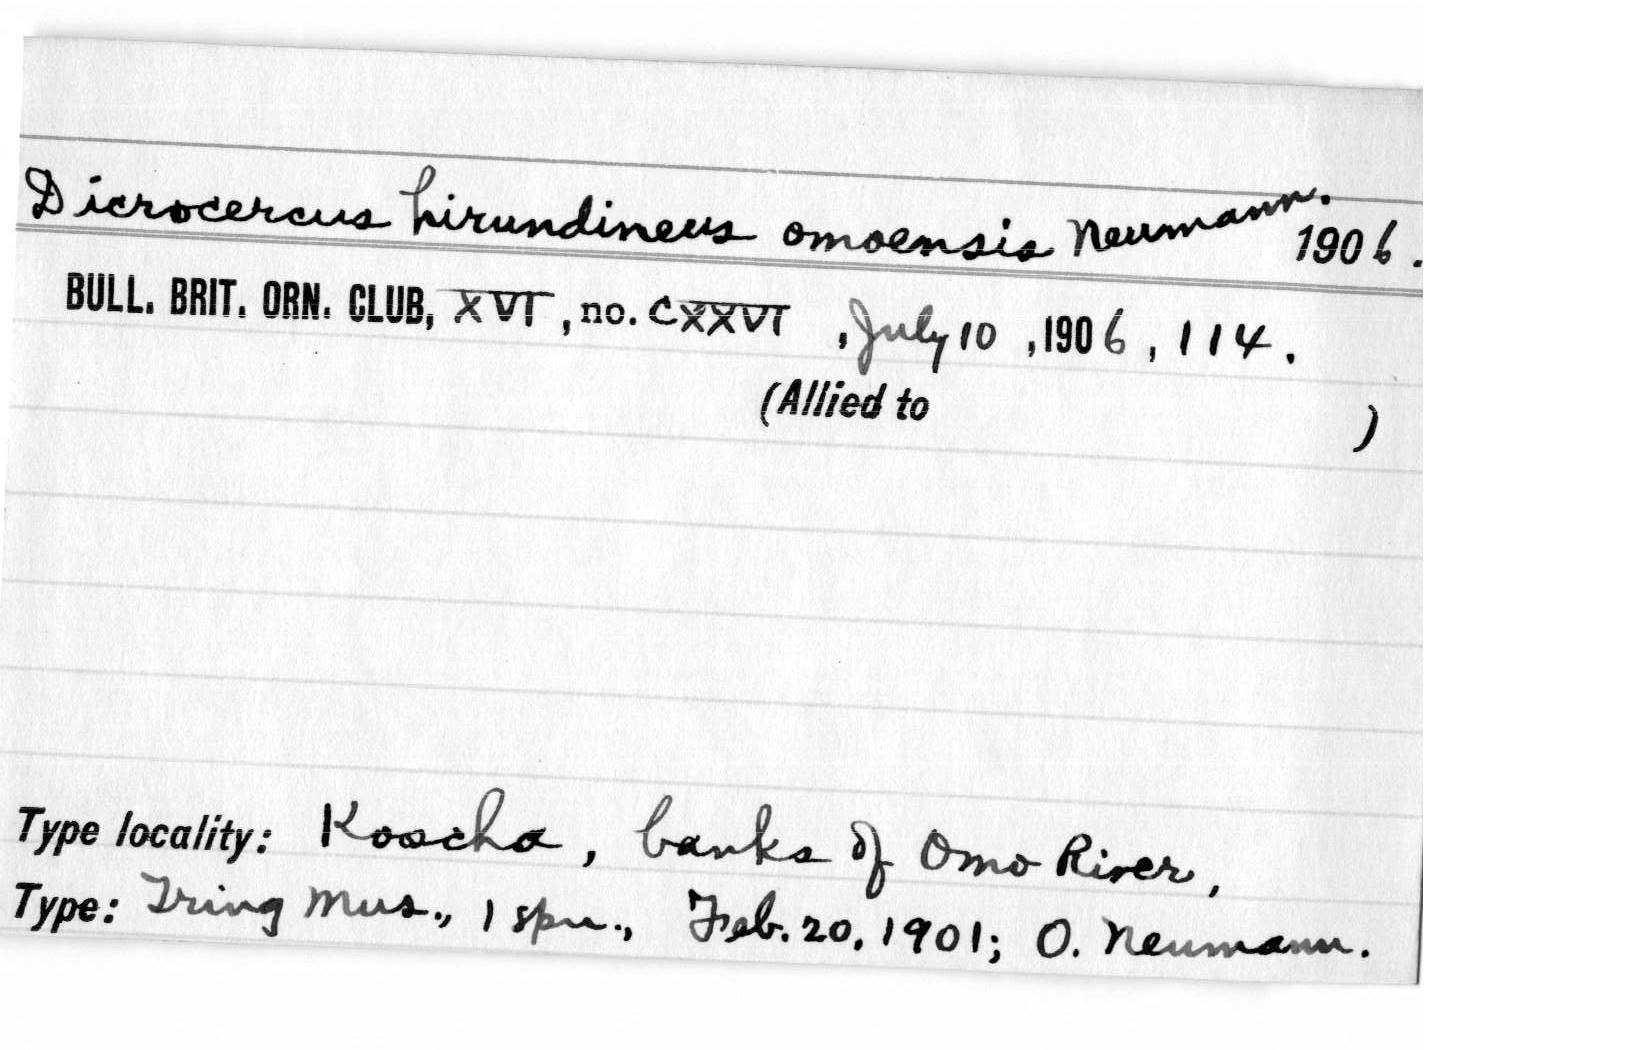 Dicrocercus hirundineus omoensis Neumann. 1906.
BULL. BRIT. ORN. CLUB, XVI, no. CXXVI, July 10, 1906, 114.
(Allied to )
Type locality: Koscha, banks of Omo River,
Type: Tring Mus., 1 spn., Feb. 20, 1901; O. Neumann.